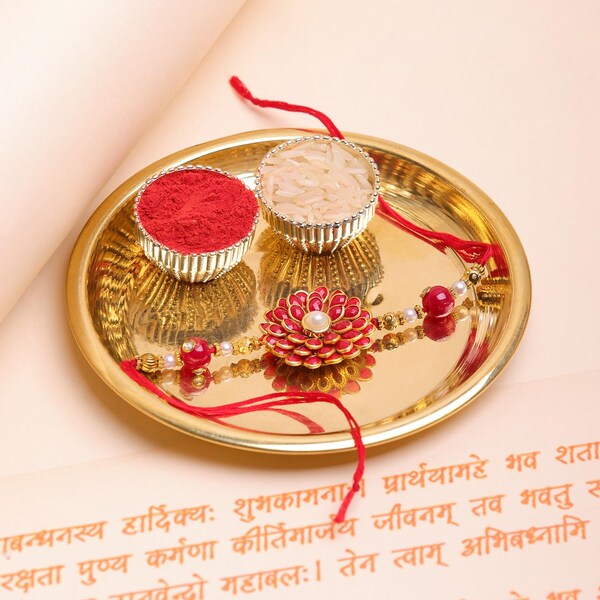 बन्धनस्य हार्दिक्यः शुभकामनाः। प्रार्थयामहे भव शता
रक्षता पुण्य कर्मणा कीर्तिमार्जय जीवनम् तव भवतु
महाबलः। तेन त्वाम् अभिबध्नामि